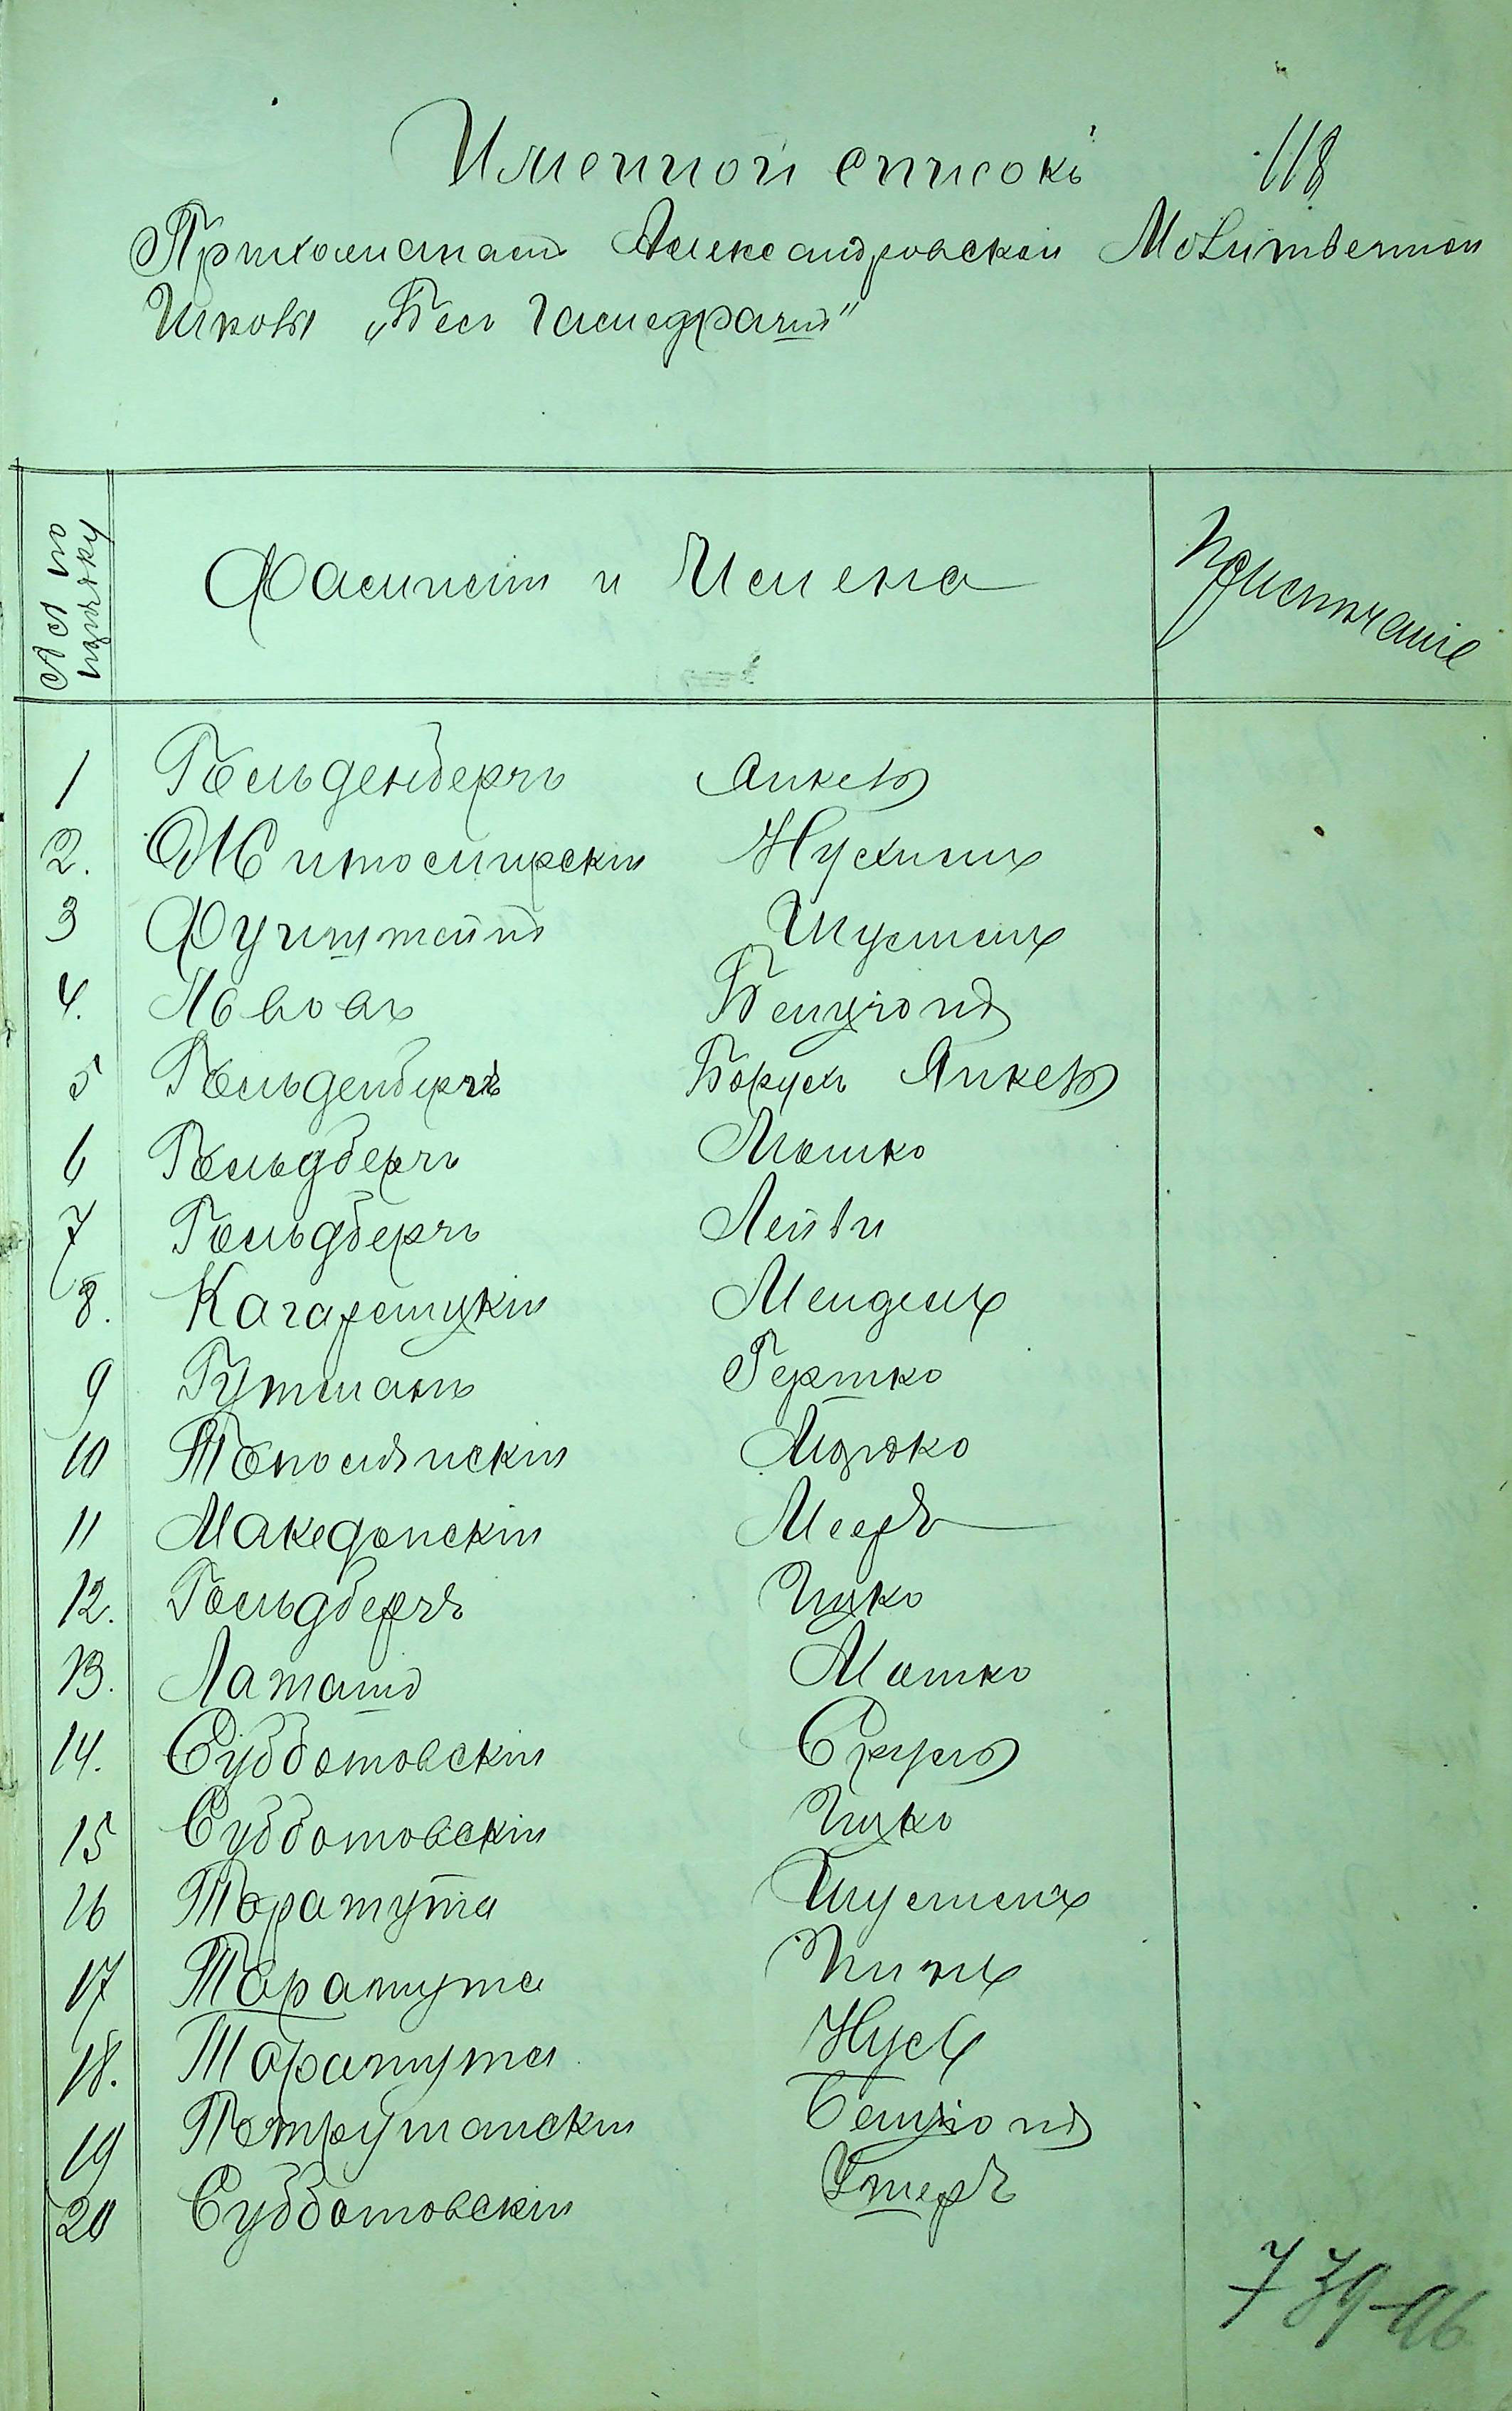 Именной списокъ
118
Прихожанамъ Александровской Молитвенной
Школы „Бесъ Гамедрашъ"
№№ по порядку
Фамиліи и Имена
Примѣчаніе
1 Гольденбергъ Янкель
2. Житомирскій Нухимъ
3 Фуштейнъ Шулимъ
4. Львовъ Бенціонъ
5 Гольденбергъ Борухъ Янкель
6 Гольдбергъ Мошко
7 Гольдбергъ Лейви
8. Кагарлицкій Мендель
9 Гутманъ Гершко
10 Топольнскій Мордко
11 Македонскій Мееръ
12. Гольдбергъ Ицко
13. Латашъ Мошко
14. Субботовскій Сруль
15 Субботовскій Ицко
16 Таратута Шулимъ
17 Таратута Пинхъ
18. Таратута Нусъ
19 Петрушанскій Бенціонъ
20 Субботовскій Ушеръ
739-96